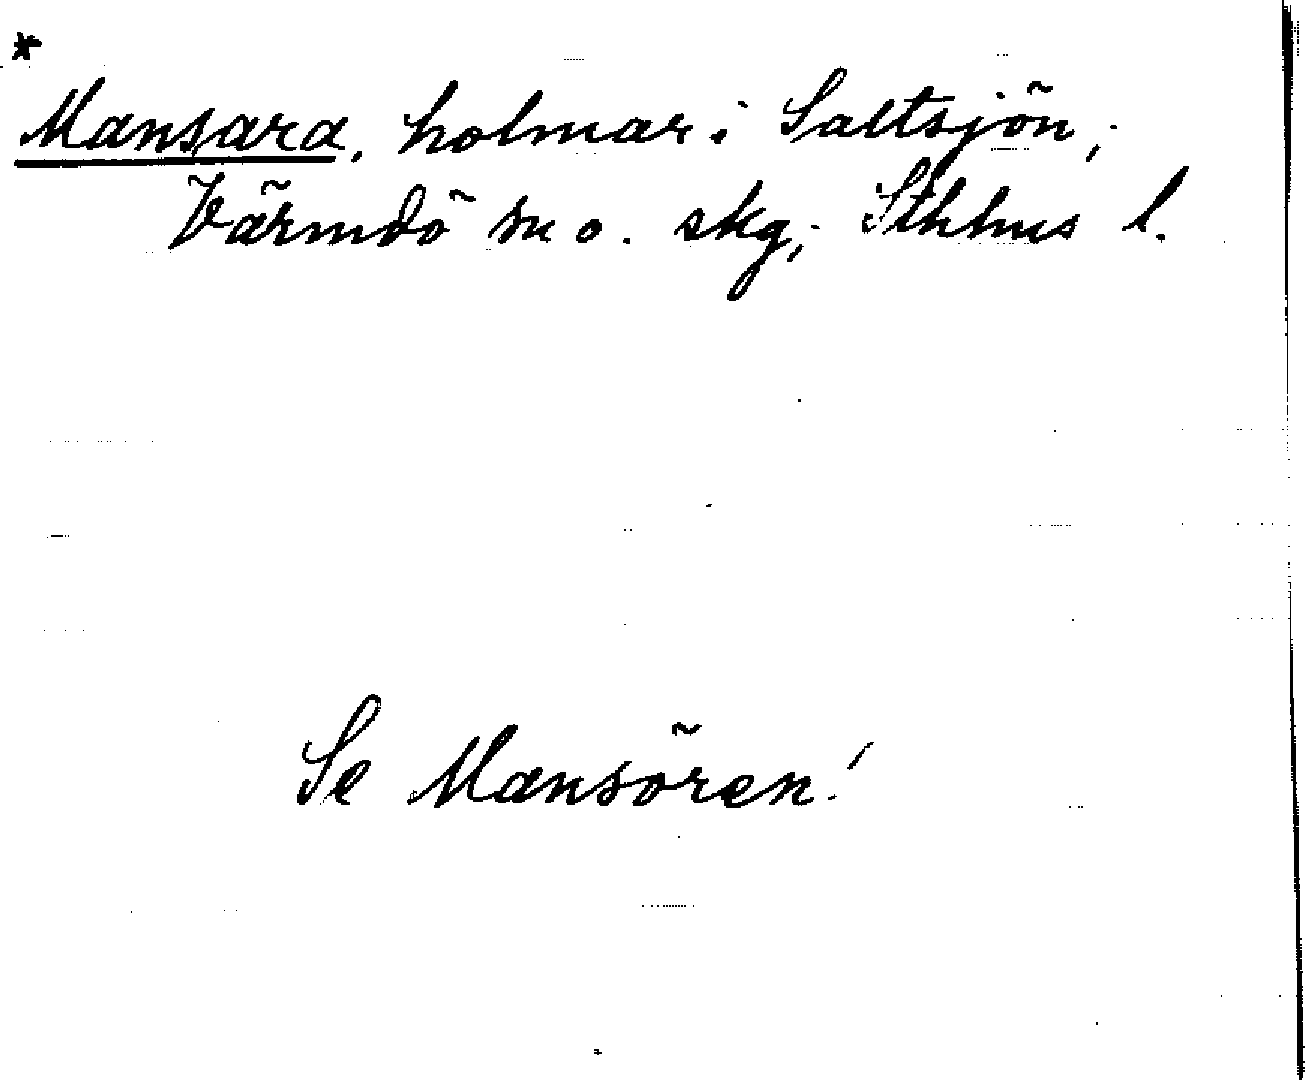 *
Mansara, holmar i Saltsjön,
Värmdö sn o. skg, Sthlms l.
Se Mansören!